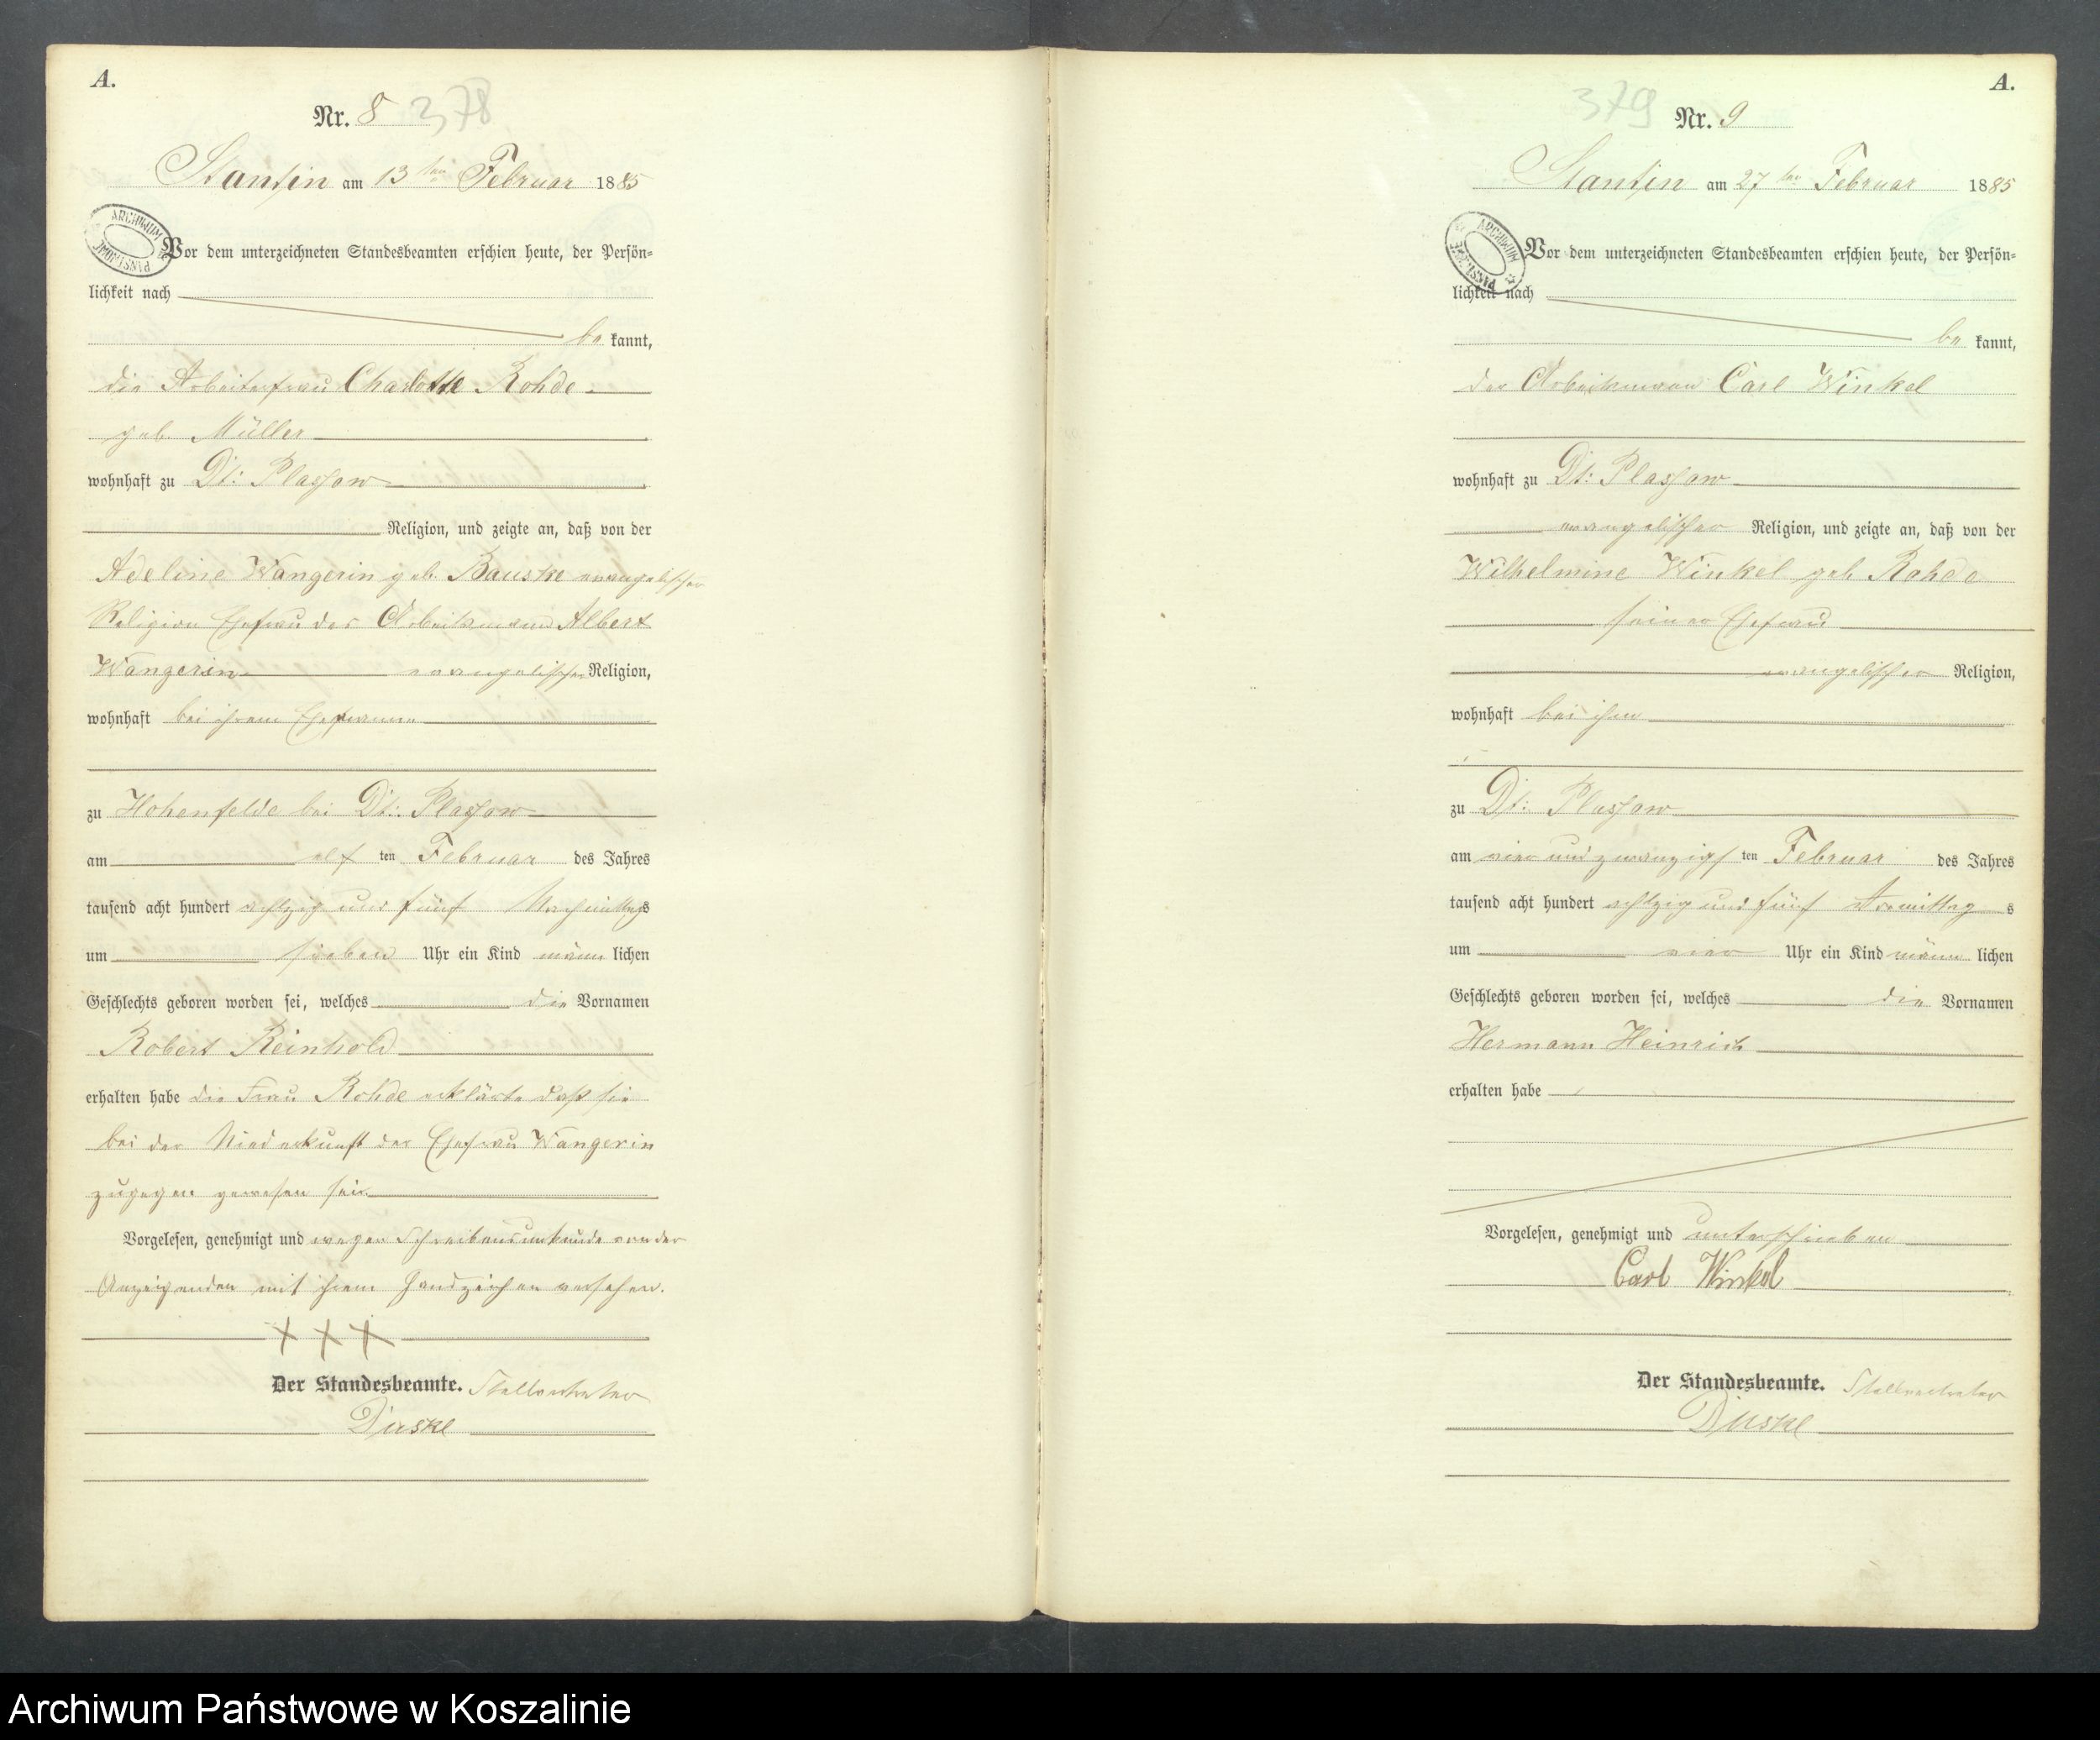 A.
Nr. 8 378
Stantin am 13ten Februar 1885
ARCHIWUM PAŃSTWOWE
Vor dem unterzeichneten Standesbeamten erschien heute, der Persön-
lichkeit nach
be kannt,
die Arbeiterfrau Charlotte Rohde
geb. Müller
wohnhaft zu Dt: Plassow
Religion, und zeigte an, daß von der
Adeline Wangerin geb. Bauske evangelischer
Religion Ehefrau des Arbeitsmann Albert
Wangerin evangelischer Religion,
wohnhaft bei ihrem Ehemanne
zu Hohenfelde bei Dt: Plassow
am elf ten Februar des Jahres
tausend acht hundert achtzig und fünf Nachmittags
um sieben Uhr ein Kind männ lichen
Geschlechts geboren worden sei, welches die Vornamen
Robert Reinhold
erhalten habe die Frau Rohde erklärte daß sie
bei der Niederkunft der Ehefrau Wangerin
zugegen gewesen sei.
Vorgelesen, genehmigt und wegen Schreibensunkunde von der
Anzeigenden mit ihrem Handzeichen versehen.
+ + +
Der Standesbeamte. Stellvertreter
Duske
A.
379 Nr. 9
Stantin am 27ten Februar 1885
ARCHIWUM PAŃSTWOWE
Vor dem unterzeichneten Standesbeamten erschien heute, der Persön-
lichkeit nach
be kannt,
der Arbeitsmann Carl Winkel
wohnhaft zu Dt: Plassow
evangelischer Religion, und zeigte an, daß von der
Wilhelmine Winkel geb. Rohde
seiner Ehefrau
evangelischer Religion,
wohnhaft bei ihm
zu Dt: Plassow
am vier und zwanzigs ten Februar des Jahres
tausend acht hundert achtzig und fünf Vormittag s
um vier Uhr ein Kind männ lichen
Geschlechts geboren worden sei, welches die Vornamen
Hermann Heinrich
erhalten habe
Vorgelesen, genehmigt und unterschrieben
Carl Winkel
Der Standesbeamte. Stellvertreter
Duske
Archiwum Państwowe w Koszalinie